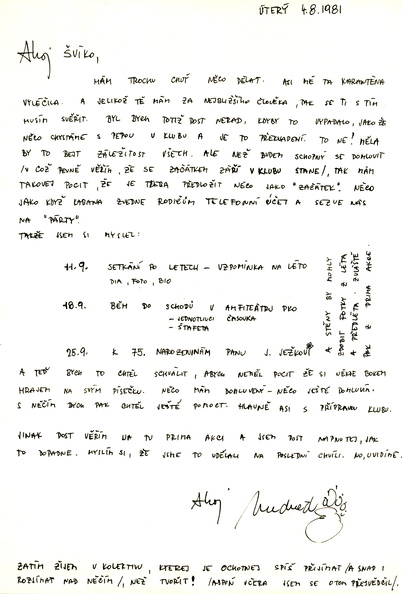 ÚTERÝ 4.8.1981
Ahoj ŠVÍKO,
MÁM TROCHU CHUŤ NĚCO DĚLAT. ASI MĚ TA KARANTÉNA
VYLÉČILA. A JELIKOŽ TĚ MÁM ZA NEJBLIŽŠÍHO ČLOVĚKA, TAK SE TI S TÍM
MUSÍM SVĚŘIT. BYL BYCH TOTIŽ DOST NERAD, KDYBY TO VYPADALO, JAKO ŽE
NĚCO CHYSTÁME S PEPOU V KLUBU A JE TO PŘEKVAPENÍ. TO NE! MĚLA
BY TO BEJT ZÁLEŽITOST VŠECH. ALE NEŽ BUDEM SCHOPNÝ SE DOMLUVIT
/V COŽ PEVNĚ VĚŘÍM, ŽE SE ZAČÁTKEM ZÁŘÍ V KLUBU STANE/, TAK MÁM
TAKOVEJ POCIT, ŽE JE TŘEBA PŘEDLOŽIT NĚCO JAKO "ZAČÁTEK". NĚCO
JAKO KDYŽ LABANA ZVEDNE RODIČŮM TELEFONNÍ ÚČET A SEZVE NÁS
NA "PÁRTY".
TAKŽE JSEM SI MYSLEL:
11.9. SETKÁNÍ PO LETECH – VZPOMÍNKA NA LÉTO
DIA, FOTO, BIO
18.9. BĚH DO SCHODŮ V AMFITEÁTRU PKO
- JEDNOTLIVCI ČASOVKA
- ŠTAFETA
25.9. K 75. NAROZENINÁM PANU J. JEŽKOVI*
A STĚNY BY MOHLY
ZDOBIT FOTKY Z LÉTA
A PŘEDLÉTA. ZVLÁŠTĚ
PAK Z PRIMA AKCE.
A TEĎ BYCH TO CHTĚL SCHVÁLIT, ABYCH NEMĚL POCIT ŽE SI NĚKDE BOKEM
HRAJEM NA SVÝM PÍSEČKU. NĚCO MÁM DOMLUVENÍ – NĚCO JEŠTĚ DOMLUVÍM.
S NĚČÍM BYCH PAK CHTĚL JEŠTĚ POMOCT. HLAVNĚ ASI S PŘÍPRAVOU KLUBU.
JINAK DOST VĚŘÍM NA TU PRIMA AKCI A JSEM DOST NAPNUTEJ, JAK
TO DOPADNE. MYSLÍM SI, ŽE JSME TO UDĚLALI NA POSLEDNÍ CHVÍLI. NO, UVIDÍME.
Ahoj
ZATÍM ŽIJEM V KOLEKTIVU, KTEREJ JE OCHOTNEJ SPÍŠ PŘIJÍMAT /A SNAD I
ROZJÍMAT NAD NĚČÍM/, NEŽ TVOŘIT! /ASPOŇ VČERA JSEM SE O TOM PŘESVĚDČIL/.